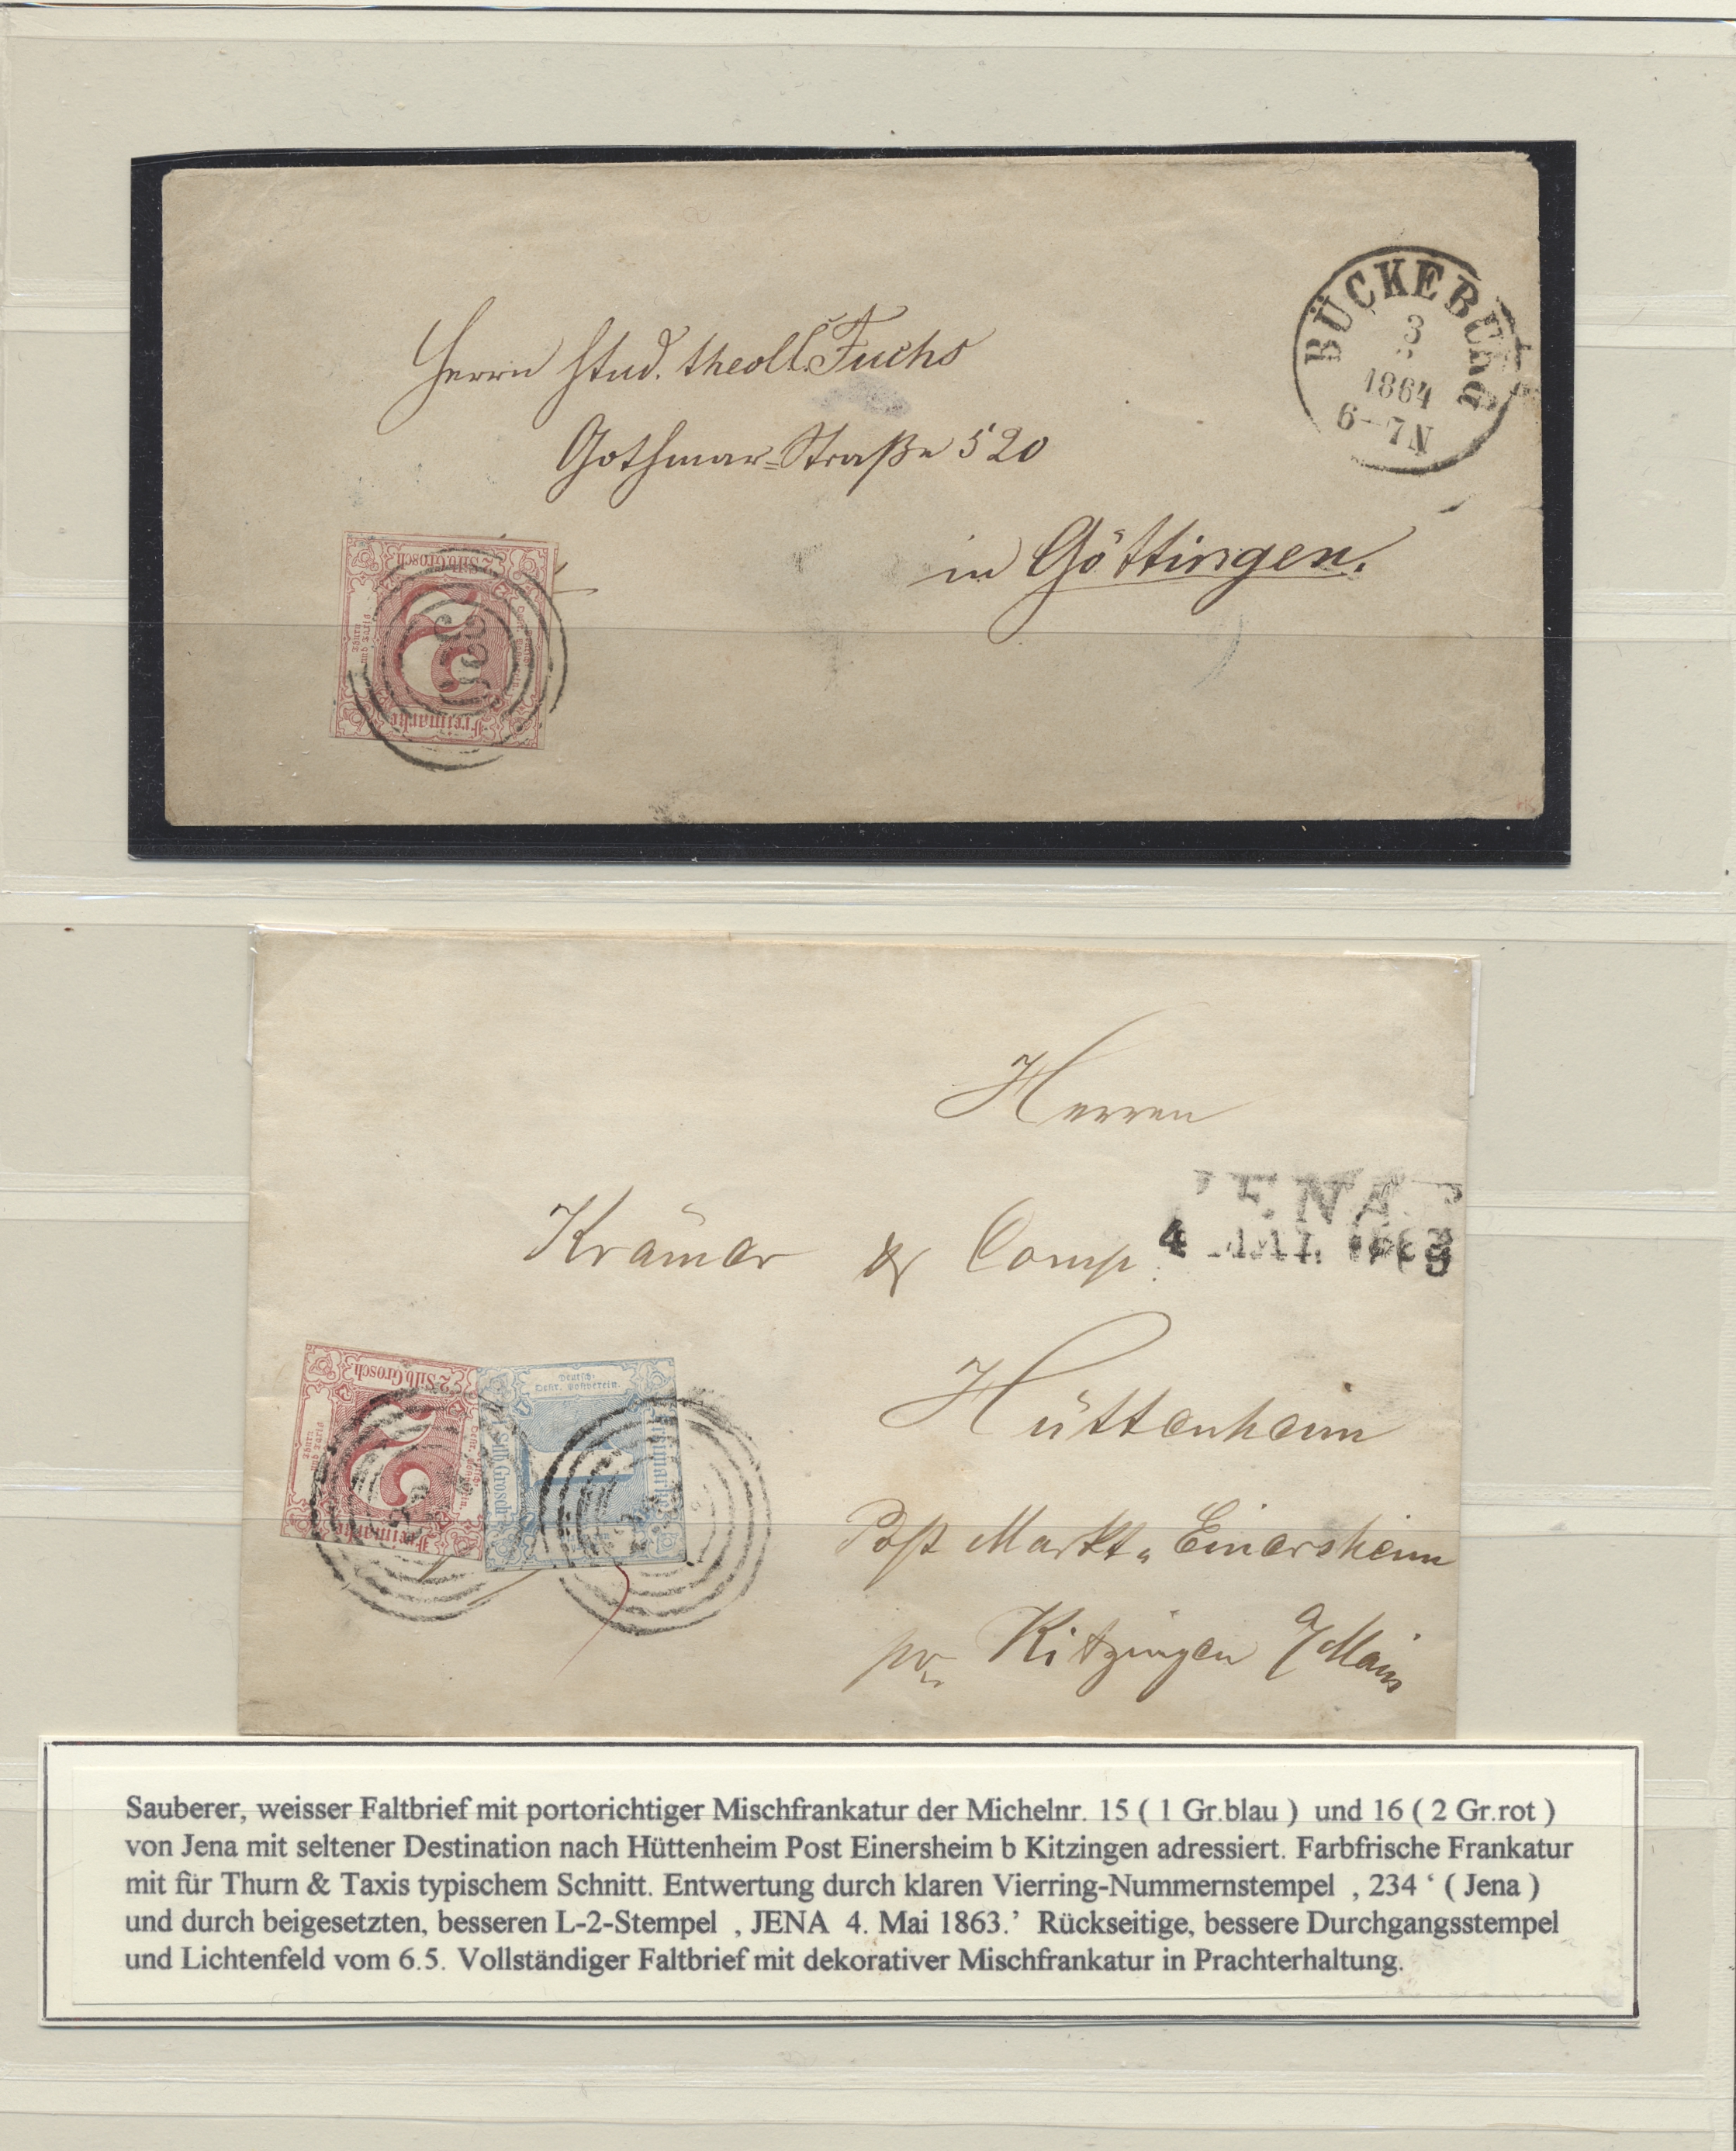 BÜCKEBURG
3
1864
6-7N
Herrn Stud. theol. Fuchs
Gothmar=Straße 520
in Göttingen.
2 Silb. Grosch
Thurn
und Taxis
Freimarke
Herren
JENA
4 MAI. 1863
Krämer & Comp.
Hüttenheim
Post Markt-Einersheim
pr. Kitzingen a/Main
2 Silb. Grosch
Thurn
und Taxis
Freimarke
Deutsch-
Oestr. Postverein.
1 Silb. Grosch
Freimarke
Sauberer, weisser Faltbrief mit portorichtiger Mischfrankatur der Michelnr. 15 ( 1 Gr.blau ) und 16 ( 2 Gr.rot )
von Jena mit seltener Destination nach Hüttenheim Post Einersheim b Kitzingen adressiert. Farbfrische Frankatur
mit für Thurn & Taxis typischem Schnitt. Entwertung durch klaren Vierring-Nummernstempel ‚ 234 ‘ ( Jena )
und durch beigesetzten, besseren L-2-Stempel ‚ JENA 4. Mai 1863.’ Rückseitige, bessere Durchgangsstempel
und Lichtenfeld vom 6.5. Vollständiger Faltbrief mit dekorativer Mischfrankatur in Prachterhaltung.